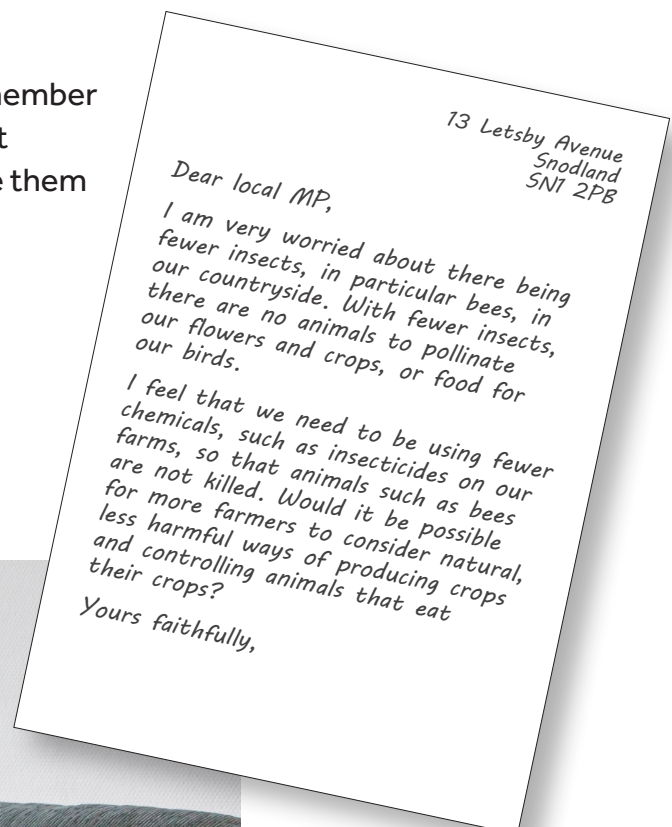 member
t
e them
13 Letsby Avenue
Snodland
SN1 2PB
Dear local MP,
I am very worried about there being
fewer insects, in particular bees, in
our countryside. With fewer insects,
there are no animals to pollinate
our flowers and crops, or food for
our birds.
I feel that we need to be using fewer
chemicals, such as insecticides on our
farms, so that animals such as bees
are not killed. Would it be possible
for more farmers to consider natural,
less harmful ways of producing crops
and controlling animals that eat
their crops?
Yours faithfully,